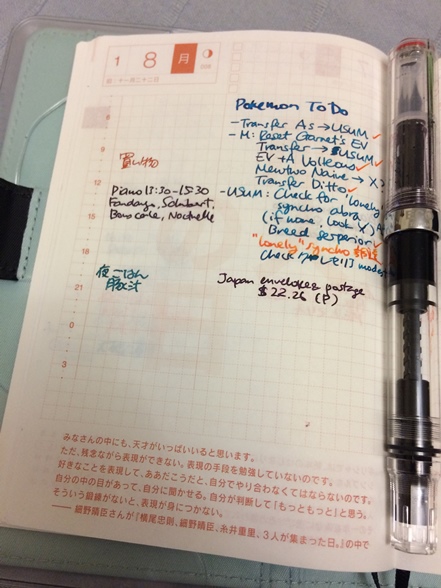 1 8 月
旧:十一月二十二日
Pokemon To Do
- Transfer As → USUM ✓
- M: Reset Garnet's EV
Transfer → USUM ✓
EV + A
Mewtwo Naive → X
Transfer Ditto ✓
- USUM: Check for 'lonely
synchro abra
(if none, look X)
Breed serperior ✓
"lonely" synchro
Check modest
9
買い物
12
Piano 13:30-15:30
15
18
夜ごはん
豚汁
Japan envelopes postage
$22.26 (P)
21
0
3
みなさんの中にも、天才がいっぱいいると思います。
ただ、残念ながら表現ができない。表現の手段を勉強していないのです。
好きなことを表現して、ああだこうだと、自分でやり合わなくてはならないのです。
自分の中の目があって、自分に聞かせる。自分が判断して「もっともっと」と思う。
そういう鍛錬がないと、表現が身につかない。
── 細野晴臣さんが『横尾忠則、細野晴臣、糸井重里、3人が集まった日。』の中で